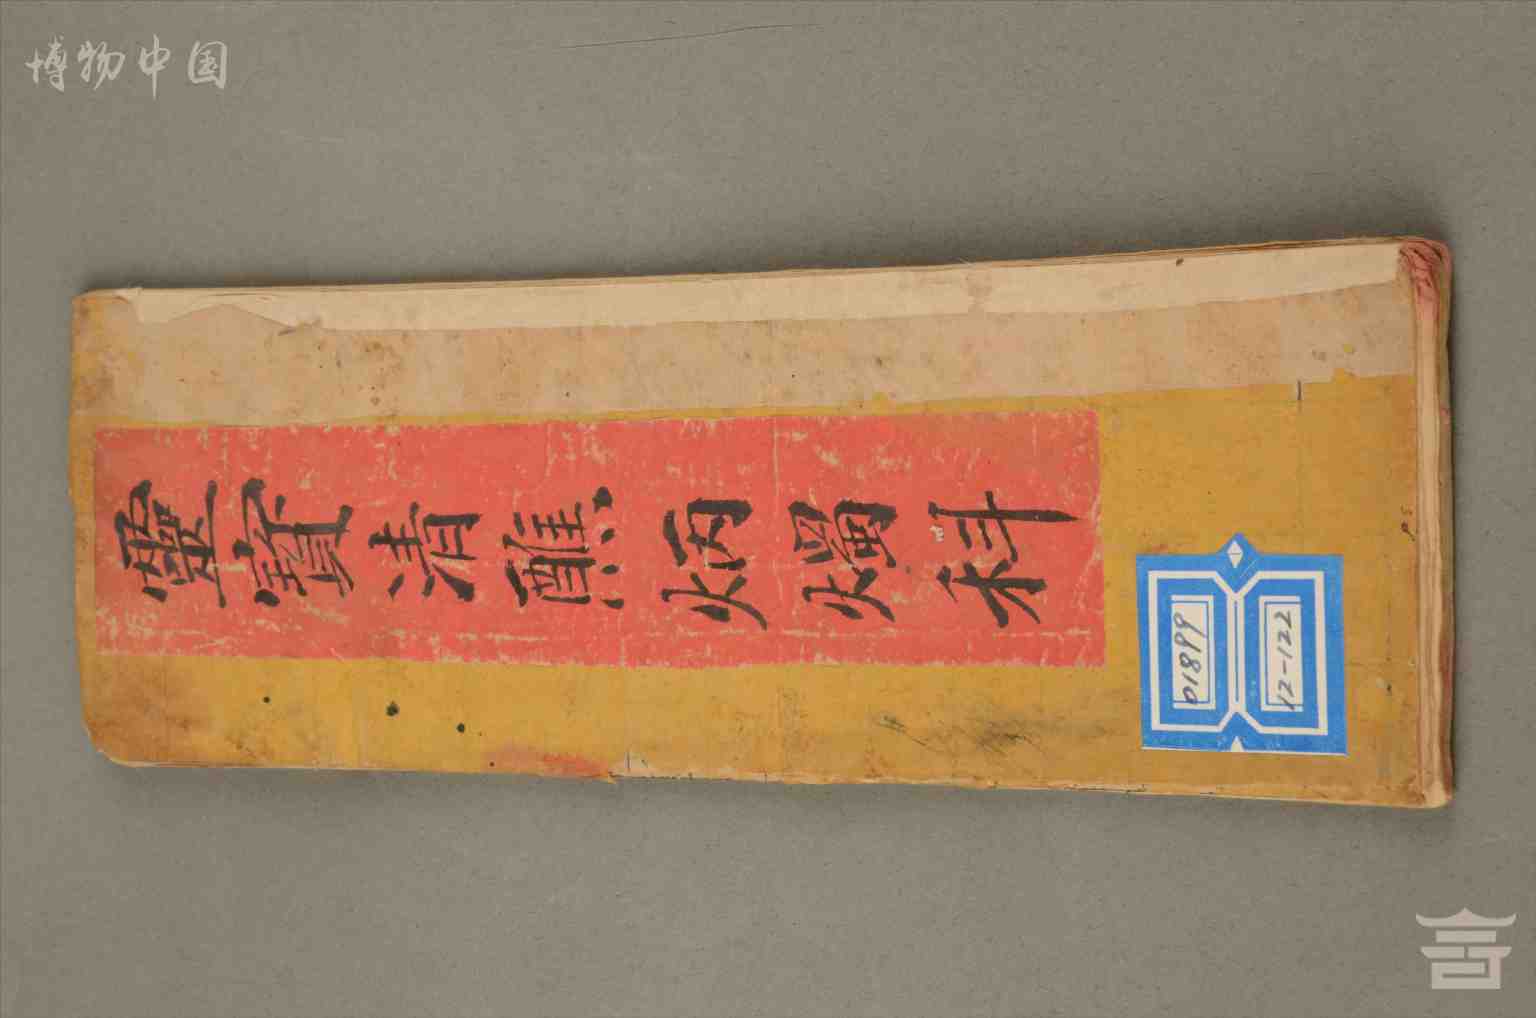 博物中国
靈寶清醮炳燭科
01899
12-122